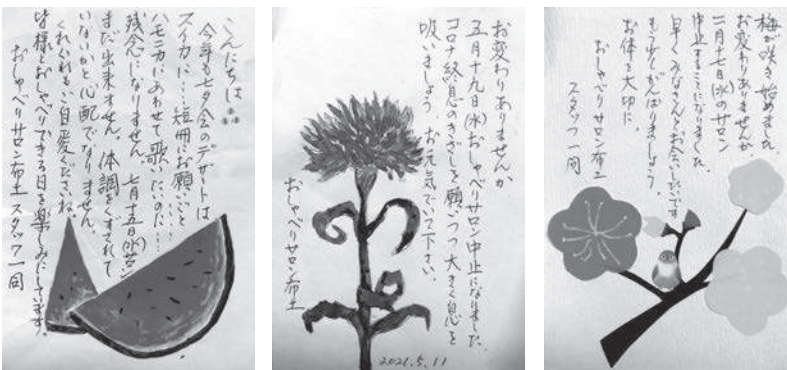 こんにちは
今年も七夕会のデザートは
スイカに…短冊にお願いごと
ハモニカにあわせて歌いたいのに…
残念でなりません。七月十五日(水)
まだ出来ません。体調をくずされて
いないかと心配でなりません。
くれぐれもご自愛くださいね。
皆様とおしゃべりできる日を楽しみにしています。
おしゃべりサロン布土スタッフ一同
お変わりありませんか
五月十九日(水)おしゃべりサロン中止になりました。
コロナ終息のきざしを願いつつ大きく息を
吸いましょう。お元気でいて下さい。
おしゃべりサロン布土
2021.5.11
梅が咲き始めました。
お変わりありませんか。
二月十七日(水)のサロン
中止することになりました。
早くみなさんとお会いしたいです
もう少しがんばりましょう。
お体を大切に。
おしゃべりサロン布土
スタッフ一同